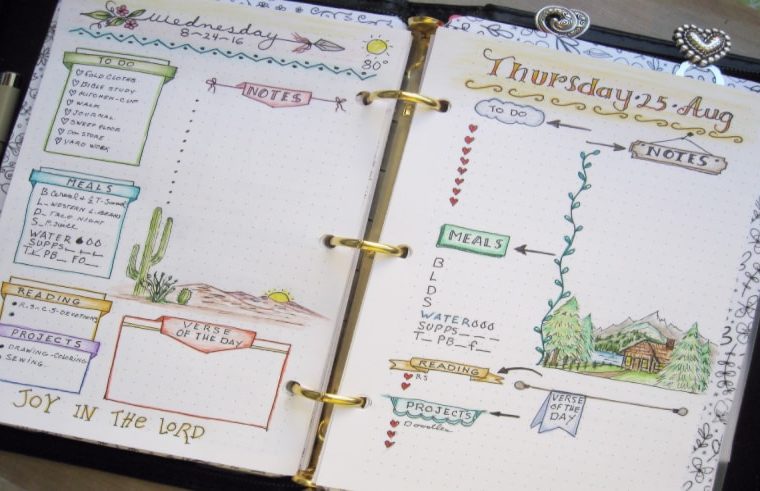 Wednesday
8-24-16
80°
TO DO
FOLD CLOTHES
BIBLE STUDY
KITCHEN-CUP
WALK
JOURNAL
SWEEP FLOOR
STORE
YARD WORK
NOTES
MEALS
B Cereal &
L- WESTERN L. BEANS
D- TACO NIGHT
S-
WATER
SUPPS
T_ PB_ FO_
READING
R.S.-C.S-DEVOTIONS
PROJECTS
DRAWING-COLORING
SEWING
VERSE
OF THE DAY
JOY IN THE LORD
Thursday·25·Aug
TO DO
NOTES
MEALS
B
L
D
S
WATER
SUPPS
T_ PB_ f_
READING
RS
VERSE
OF THE
DAY
PROJECTS
Doodles